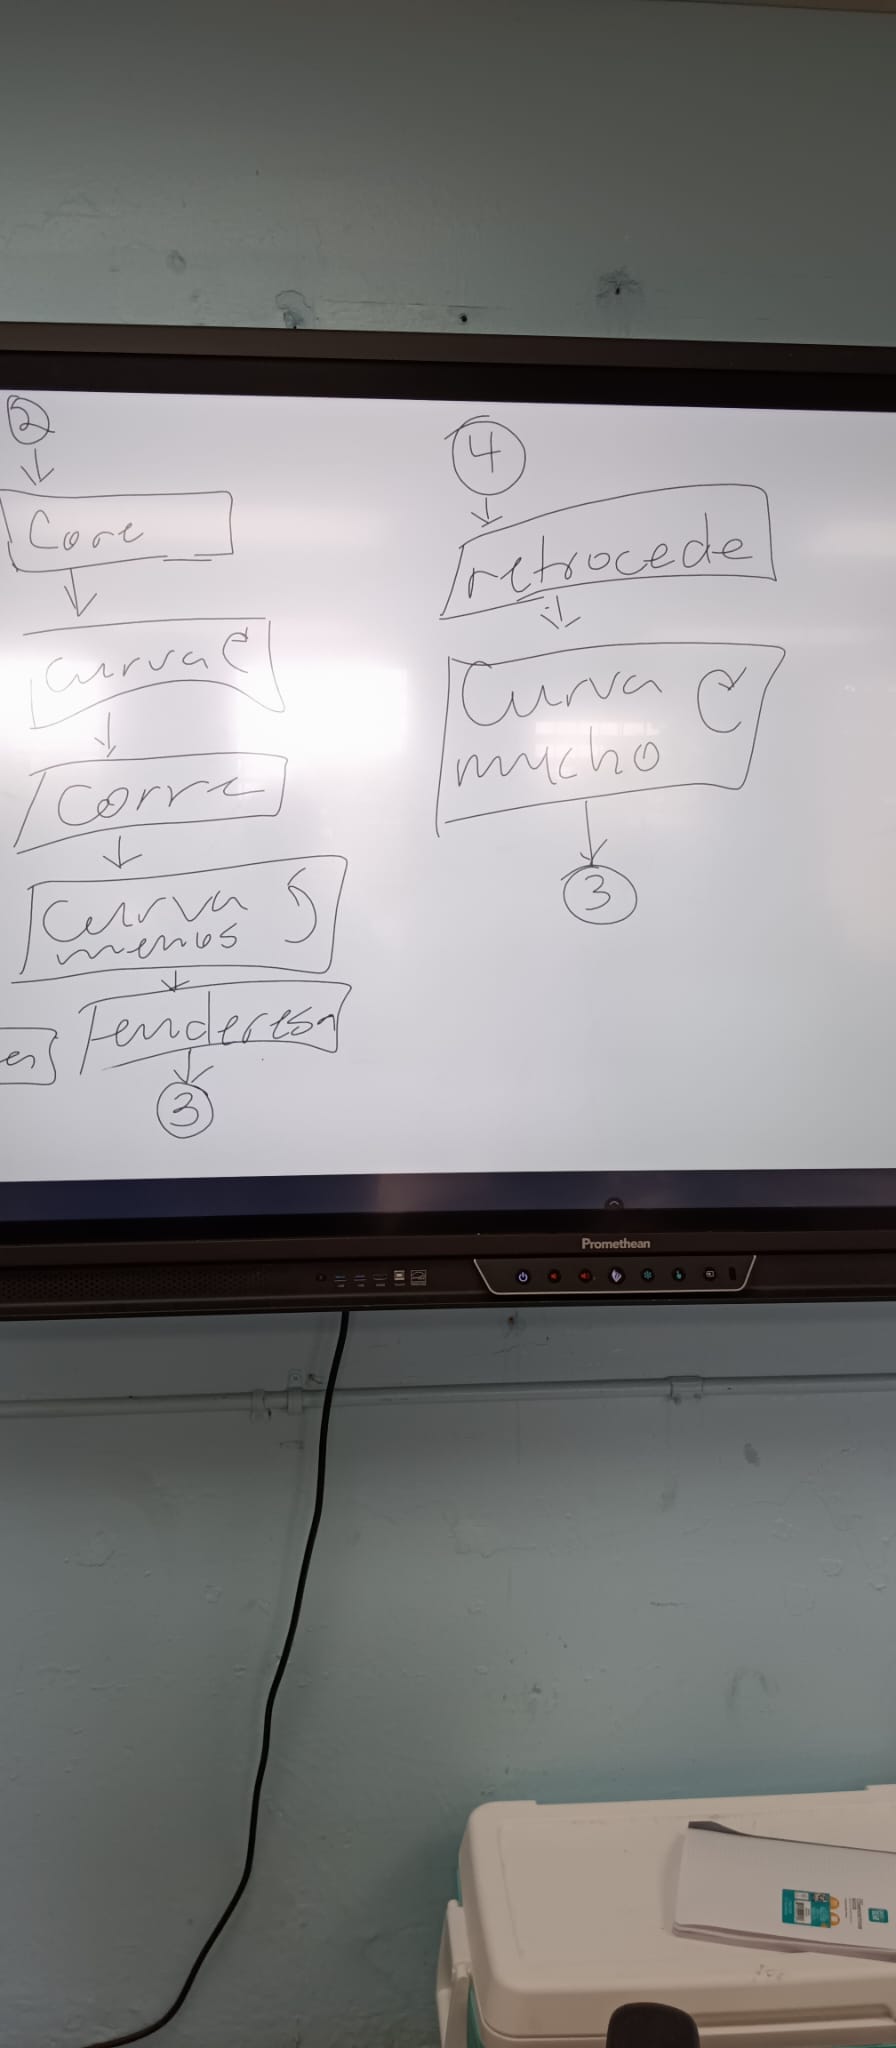 2
Core
curva
corre
Curva
menos
enderesa
en
3
4
retrocede
Curva
mucho
3
Promethean